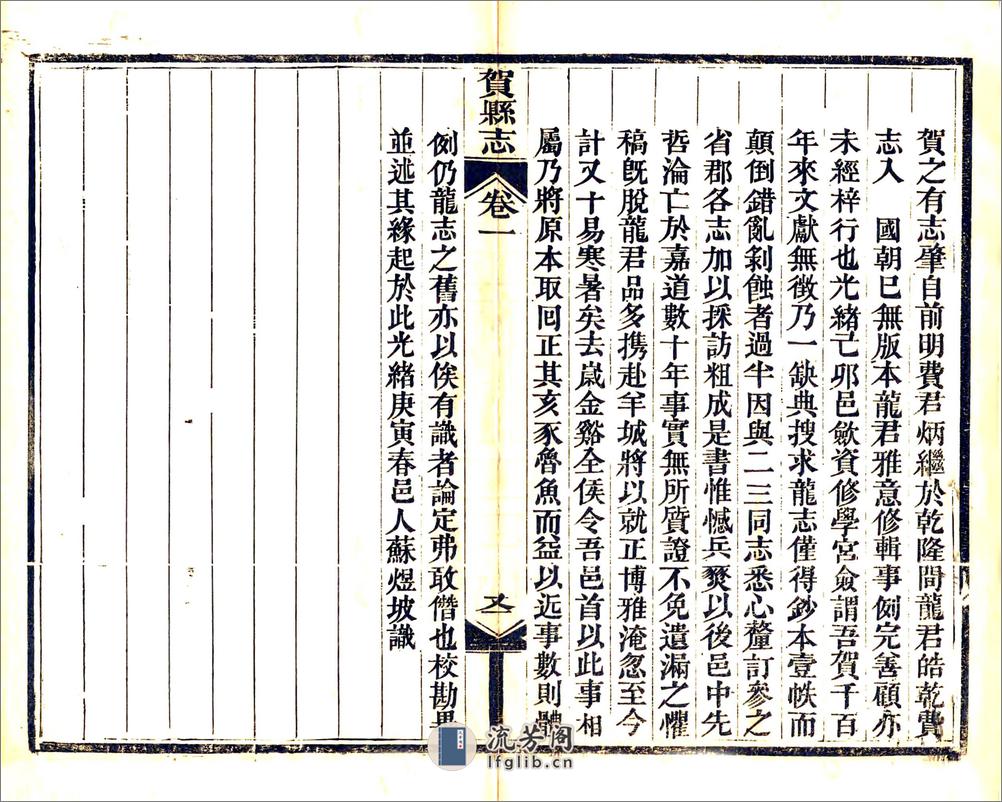 賀之有志肇自前明費君炳繼於乾隆間龍君皓乾費
志入　國朝已無版本龍君雅意修輯事例完善顧亦
未經梓行也光緒己卯邑斂資修學宮僉謂吾賀千百
年來文獻無徵乃一缺典搜求龍志僅得鈔本壹帙而
顛倒錯亂剝蝕者過半因與二三同志悉心釐訂參之
省郡各志加以採訪粗成是書惟憾兵燹以後邑中先
哲淪亡於嘉道數十年事實無所質證不免遺漏之懼
稿既脫龍君品多携赴羊城將以就正博雅淹忽至今
計又十易寒暑矣去歲金谿全侯令吾邑首以此事相
屬乃將原本取回正其亥豕魯魚而益以近事數則體
賀縣志
卷一
又一
例仍龍志之舊亦以俟有識者論定弗敢僭也校勘畢
並述其緣起於此光緒庚寅春邑人蘇煜坡識
流芳阁
lfglib.cn